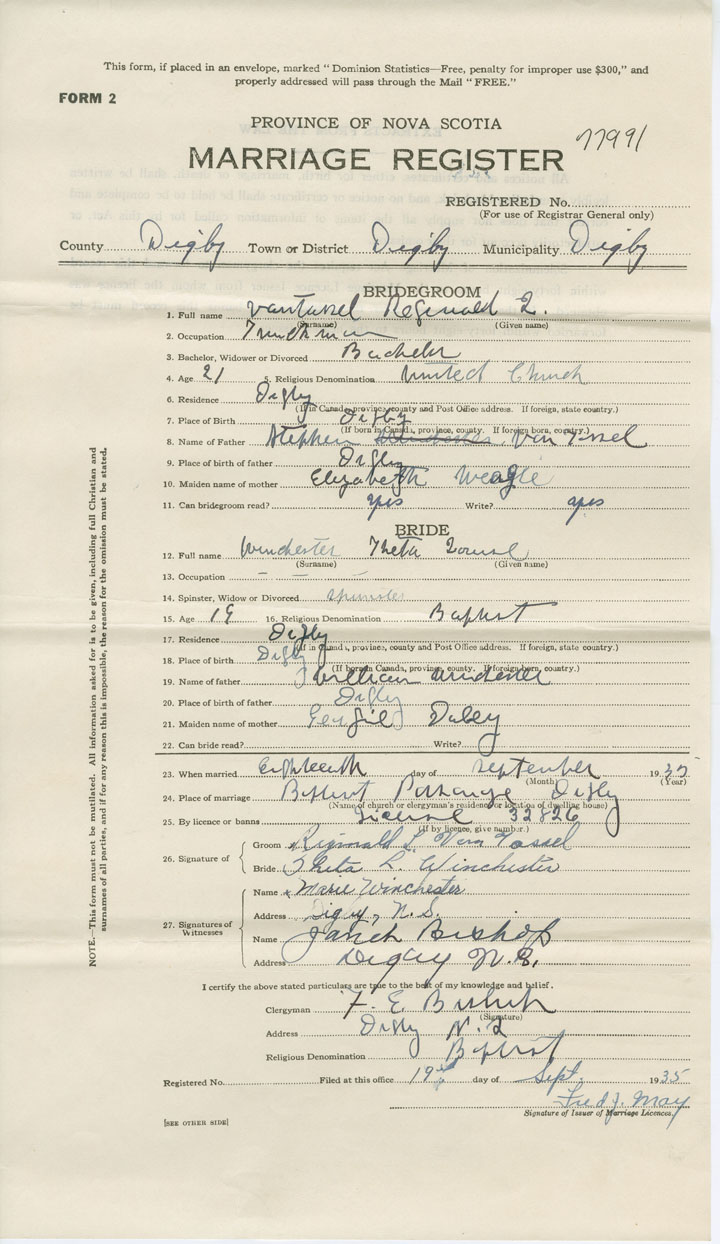 This form, if placed in an envelope, marked "Dominion Statistics—Free, penalty for improper use $300," and
properly addressed will pass through the Mail "FREE."
FORM 2
PROVINCE OF NOVA SCOTIA
77991
MARRIAGE REGISTER
REGISTERED No.
(For use of Registrar General only)
County Digby Town or District Digby Municipality Digby
BRIDEGROOM
1. Full name VanTassel Reginald L.
(Surname) (Given name)
2. Occupation Truckman
3. Bachelor, Widower or Divorced Bachelor
4. Age 21 5. Religious Denomination United Church
6. Residence Digby
(If in Canada, province, county and Post Office address. If foreign, state country.)
7. Place of Birth Digby
(If born in Canada, province, county. If foreign born, country.)
8. Name of Father Stephen Van Tassel
9. Place of birth of father Digby
10. Maiden name of mother Elizabeth Weagle
11. Can bridegroom read? yes Write? yes
BRIDE
12. Full name Winchester Theta Louise
(Surname) (Given name)
13. Occupation — — —
14. Spinster, Widow or Divorced Spinster
15. Age 19 16. Religious Denomination Baptist
17. Residence Digby
(If in Canada, province, county and Post Office address. If foreign, state country.)
18. Place of birth Digby
(If born in Canada, province, county. If foreign born, country.)
19. Name of father William Winchester
20. Place of birth of father Digby
21. Maiden name of mother Daley
22. Can bride read? Write?
23. When married Eighteenth day of September 1935
(Month) (Year)
24. Place of marriage Baptist Parsonage Digby
(Name of church or clergyman's residence or location of dwelling house)
25. By licence or banns License 32826
(If by licence, give number.)
26. Signature of
Groom Reginald L. Van Tassel
Bride Theta L. Winchester
27. Signatures of Witnesses
Name Marie Winchester
Address Digby, N.S.
Name Bishop
Address Digby N.S.
I certify the above stated particulars are true to the best of my knowledge and belief.
Clergyman F. E. Bishop
(Signature)
Address Digby N.S.
Religious Denomination Baptist
Registered No. Filed at this office 19th day of Sept. 1935
Fred J. May
Signature of Issuer of Marriage Licences.
[SEE OTHER SIDE]
NOTE.—This form must not be mutilated. All information asked for is to be given, including full Christian and
surnames of all parties, and if for any reason this is impossible, the reason for the omission must be stated.